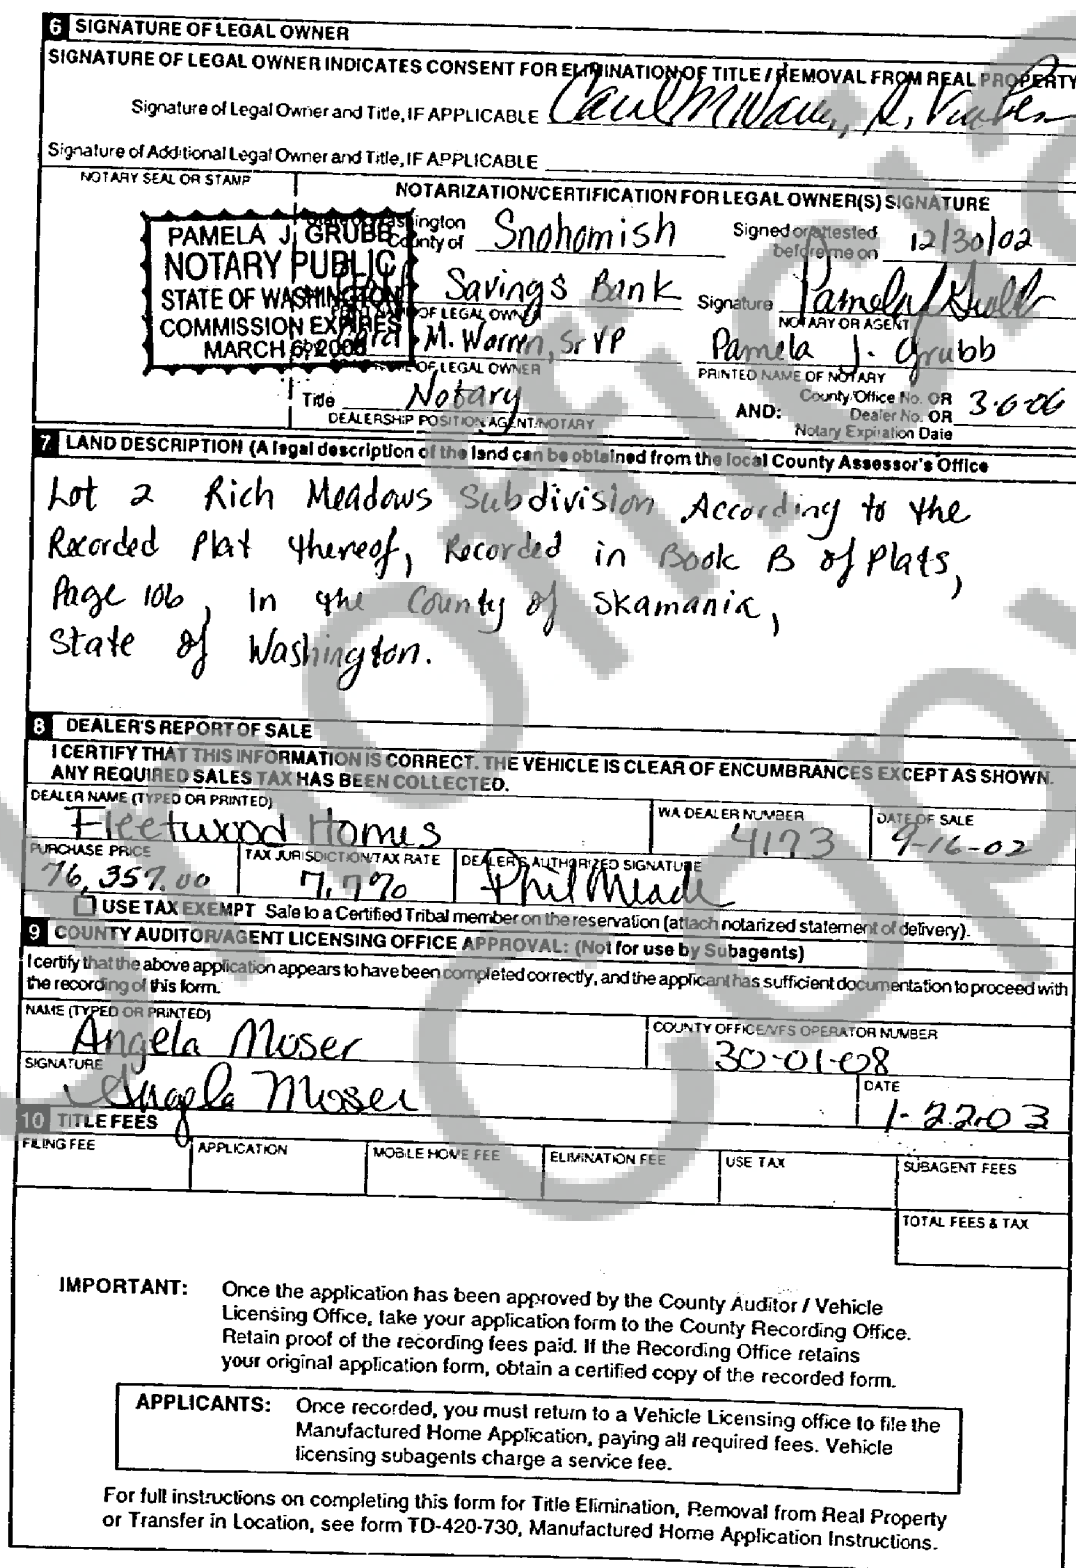 6 SIGNATURE OF LEGAL OWNER
SIGNATURE OF LEGAL OWNER INDICATES CONSENT FOR ELIMINATION OF TITLE / REMOVAL FROM REAL PROPERTY
Signature of Legal Owner and Title, IF APPLICABLE
Signature of Additional Legal Owner and Title, IF APPLICABLE
NOTARY SEAL OR STAMP
NOTARIZATION/CERTIFICATION FOR LEGAL OWNER(S) SIGNATURE
PAMELA J. GRUBB
NOTARY PUBLIC
STATE OF WASHINGTON
COMMISSION EXPIRES
MARCH 6, 2006
State of Washington
County of Snohomish
Signed or attested before me on 12/30/02
Savings Bank
OF LEGAL OWNER
Signature Pamela J Grubb
NOTARY OR AGENT
M. Warren, Sr VP
OF LEGAL OWNER
Pamela J. Grubb
PRINTED NAME OF NOTARY
Title Notary
DEALERSHIP POSITION/AGENT/NOTARY
AND: County/Office No. OR
Dealer No. OR
Notary Expiration Date
3-6-06
7 LAND DESCRIPTION (A legal description of the land can be obtained from the local County Assessor's Office
Lot 2 Rich Meadows Subdivision According to the
Recorded Plat thereof, Recorded in Book B of Plats,
Page 106, In the County of Skamania,
State of Washington.
8 DEALER'S REPORT OF SALE
I CERTIFY THAT THIS INFORMATION IS CORRECT. THE VEHICLE IS CLEAR OF ENCUMBRANCES EXCEPT AS SHOWN.
ANY REQUIRED SALES TAX HAS BEEN COLLECTED.
DEALER NAME (TYPED OR PRINTED)
Fleetwood Homes
WA DEALER NUMBER
4173
DATE OF SALE
9-16-02
PURCHASE PRICE
76,357.00
TAX JURISDICTION/TAX RATE
7.7%
DEALER'S AUTHORIZED SIGNATURE
Phil Meade
USE TAX EXEMPT Sale to a Certified Tribal member on the reservation (attach notarized statement of delivery).
9 COUNTY AUDITOR/AGENT LICENSING OFFICE APPROVAL: (Not for use by Subagents)
I certify that the above application appears to have been completed correctly, and the applicant has sufficient documentation to proceed with
the recording of this form.
NAME (TYPED OR PRINTED)
Angela Moser
COUNTY OFFICE/VFS OPERATOR NUMBER
30-01-08
SIGNATURE
Angela Moser
DATE
1-22-03
10 TITLE FEES
FILING FEE
APPLICATION
MOBILE HOME FEE
ELIMINATION FEE
USE TAX
SUBAGENT FEES
TOTAL FEES & TAX
IMPORTANT: Once the application has been approved by the County Auditor / Vehicle
Licensing Office, take your application form to the County Recording Office.
Retain proof of the recording fees paid. If the Recording Office retains
your original application form, obtain a certified copy of the recorded form.
APPLICANTS: Once recorded, you must return to a Vehicle Licensing office to file the
Manufactured Home Application, paying all required fees. Vehicle
licensing subagents charge a service fee.
For full instructions on completing this form for Title Elimination, Removal from Real Property
or Transfer in Location, see form TD-420-730, Manufactured Home Application Instructions.